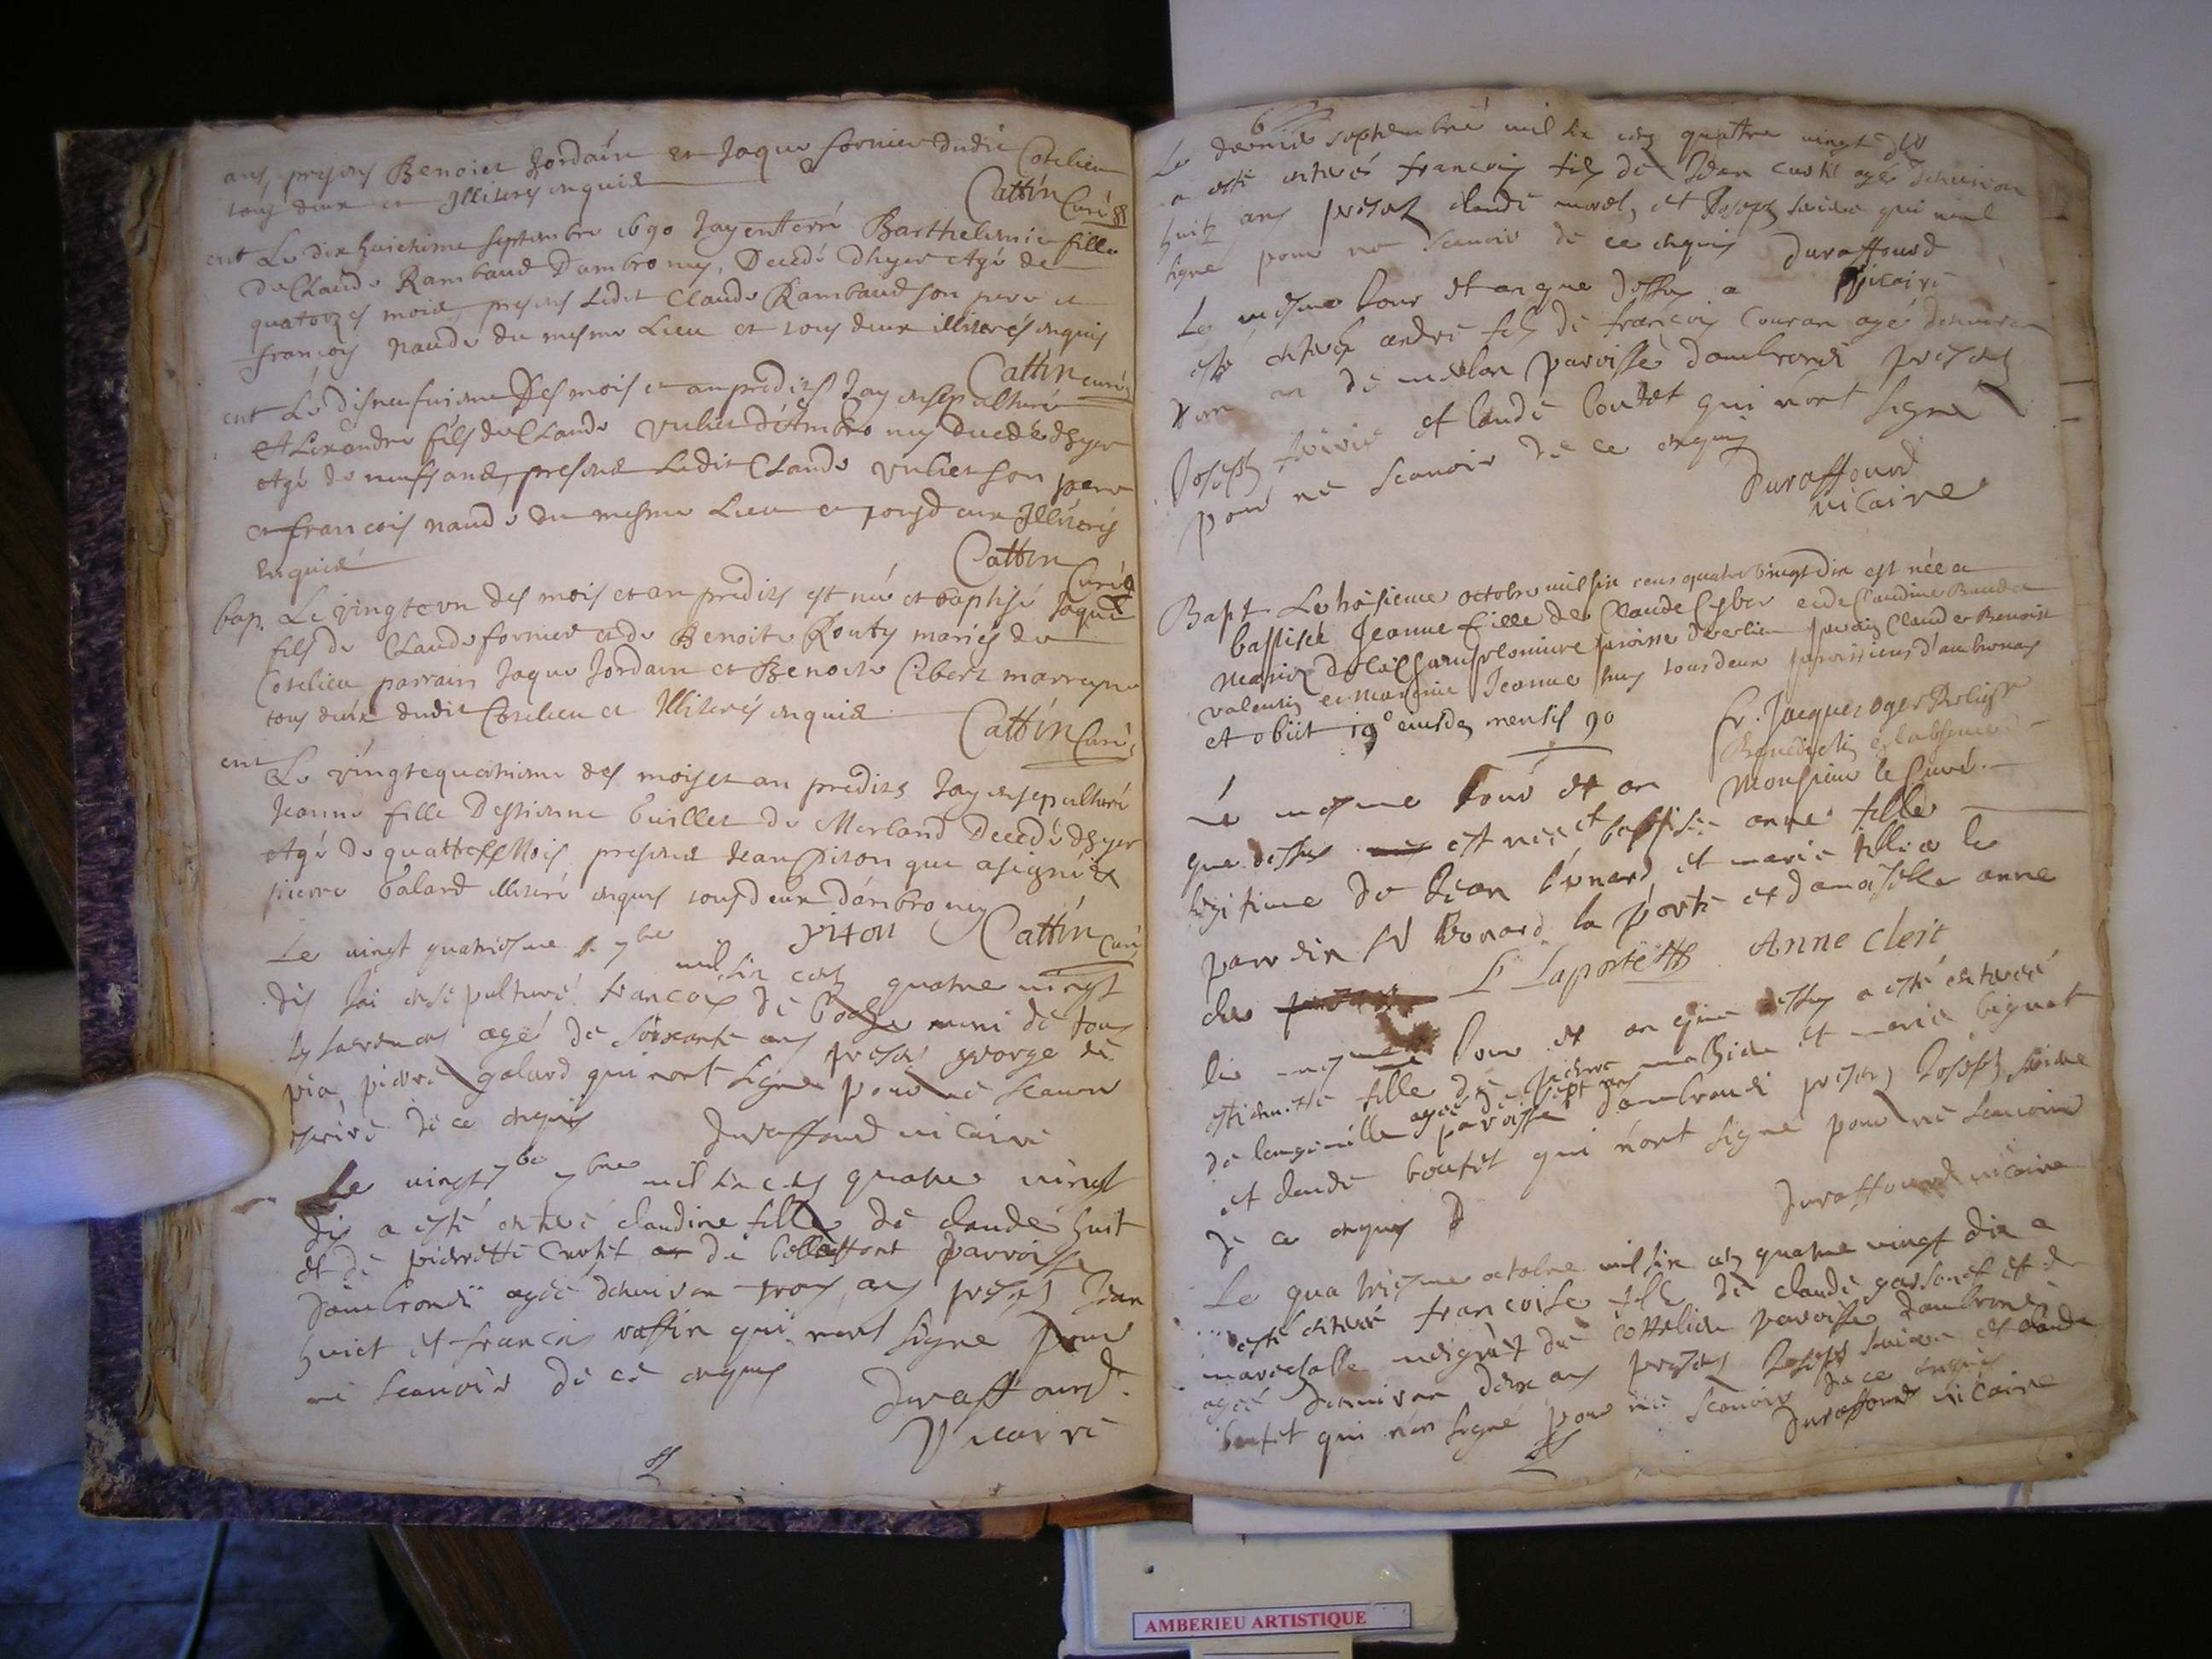 ans, presens Benoict Jordain et Jaque fornier dudit Cotelieu
tous deux et Illiteres enquis
Cattin Curé
ent Le dix huictieme septembre 1690 Jay enterré Barthelemie fille
de Claude Rambaud Dambronay, Decedé dhyer Agé de
quatorzes mois, presens Ledit Claude Rambaud son pere et
francois Naude du mesme Lieu et tous deux illiterés enquis
Cattin curé
ent Le disneufvieme Des mois et an predits Jay ensepulturé
Alexandre fils de Claude Vuliet d'Ambronay Decedé dhyer
Agé de neuf ans, presens Ledit Claude Vuliet son pere
et francois naude du mesme Lieu et tous deux Illiterés
enquis
Cattin Curé
bap. Le vingt et un des mois et an predits est né et baptisé Jaque
fils de Claude fornier et de Benoite Routy mariés de
Cotelieu parrain Jaque Jordain et Benoite Cibert marrayne
tous deux dudit Cotelieu et Illiterés enquis
Cattin Curé
ent
Le vingtequatrieme des mois et an predits Jay ensepulturé
Jeanne fille Destienne Guillet de Merland Decedé dhyer
Agé de quattres Mois presens Jean Piton que a signé et
pierre Galard illiteré enquis tous deux d'ambronay
piton Cattin Curé
Le vingt quatriesme 7bre
mil six cens quatre vingt
dis Jai ensepulturé francois de muni de tous
les sacremens agé de soixante ans presens george de
pia, pierre galard qui n'ont signé pour ne scavoir
escrire de ce enquis
Duraffourd vicaire
Le vingt 7bre mil six cens quatre vingt
dis a esté enterré claudine fille de claude huit
et de pierrette Curtit de bellaffont parroisse
dambronai agée denviron trois ans presens Jean
huict et francois raffin qui n'ont signé pour
ne scavoir de ce enquis
Duraffourd
Vicaire
6
Le dernier septembre mil six cens quattre vingt dix
a esté enterrés francois fils de Jean curtil agé denviron
huit ans presens claude morel, et Joseph suivre qui nont
signé pour ne scavoir de ce enquis Duraffourd
Vicaire
Le mesme Jour et an que dessus a
esté enterré andre fils de francois Couran agé denviron
un an de merlan parroisse dambronai presens
Joseph suivre et claude boutet qui n'ont signé
pour ne scavoir de ce enquis
Duraffourd
vicaire
Bapt Le troisieme octobre mil six cens quatre vingt Dix est née et
baptisée Jeanne fille de Claude Cyber et de Claudine Baudet
mariez de la parroisse parrain Claude Benoist
valensin et maraine Jeanne tous deux parroissiens d'ambronay
et obiit 19° eiusdem mensis 90
fr. Jacques oger Religx
Benedictin en l'absence de
Monsieur le Curé.
Le mesme Jour et an
que dessus est née et baptisée anne fille
legitime de Jean bonard et marie le
pardin Sr bonard la porte et damoiselle anne
cler
L Laporte Anne cleit
Le mesme Jour et an que dessus a esté enterré
estiennette fille de pierre mathieu et marie bignet
de longeville agée de sept ans
parroisse dambronai presens Joseph suivre
et claude boutet qui n'ont signe pour ne scavoir
de ce enquis
Duraffourd vicaire
Le quatriesme octobre mil six cens quatre vingt dix a
esté enterré francoise fille de claude garsonet et de
marechalle de cottelieu paroisse dambronai
agée denviron deux ans presens Joseph suivre et claude
boutet qui n'on signé pour ne scavoir de ce enquis
Duraffourd vicaire
AMBERIEU ARTISTIQUE